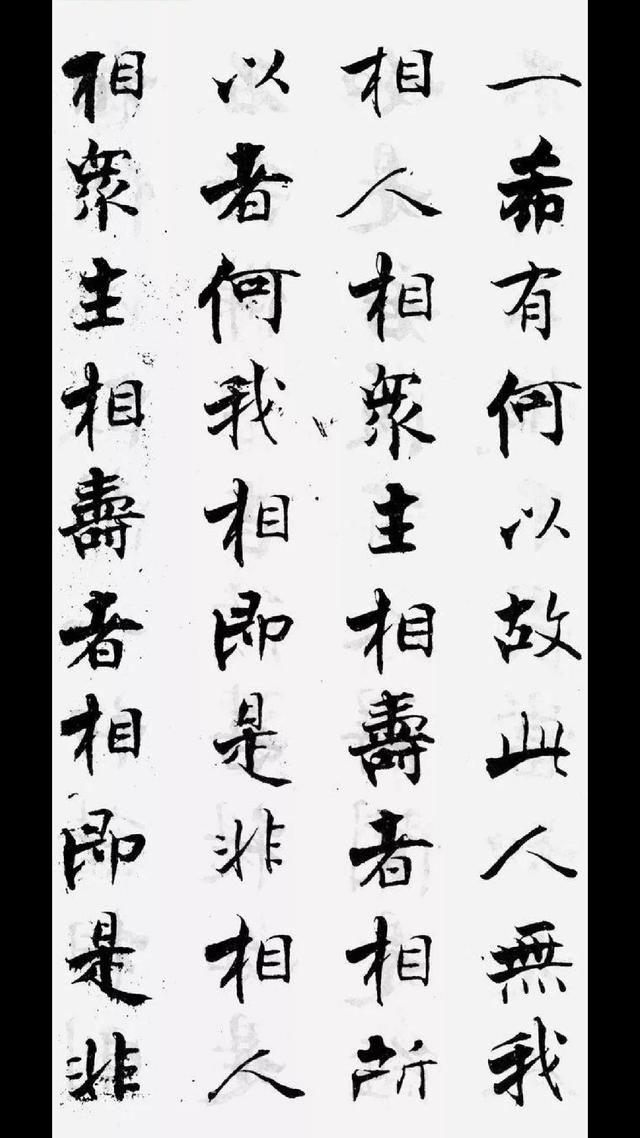 一希有何以故此人無我
相人相衆生相壽者相所
以者何我相即是非相人
相衆生相壽者相即是非